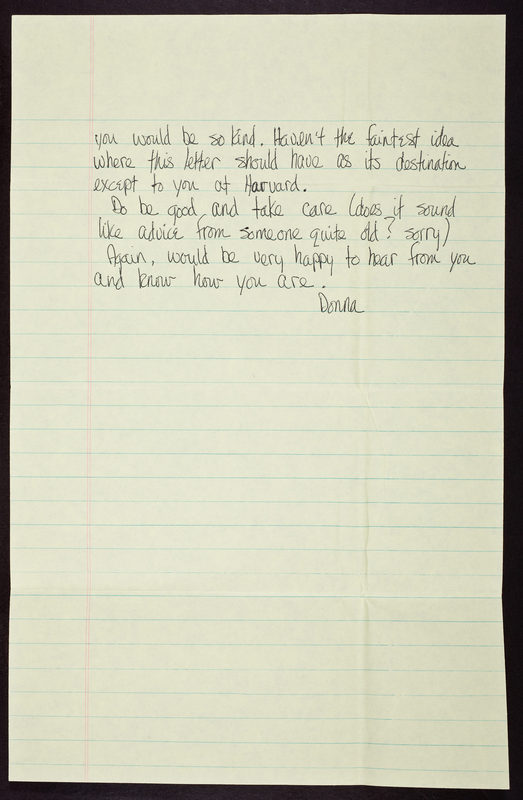 you would be so kind. Haven't the faintest idea
where this letter should have as its destination
except to you at Harvard.
Do be good and take care (does it sound
like advice from someone quite old? sorry)
Again, would be very happy to hear from you
and know how you are.
Donna